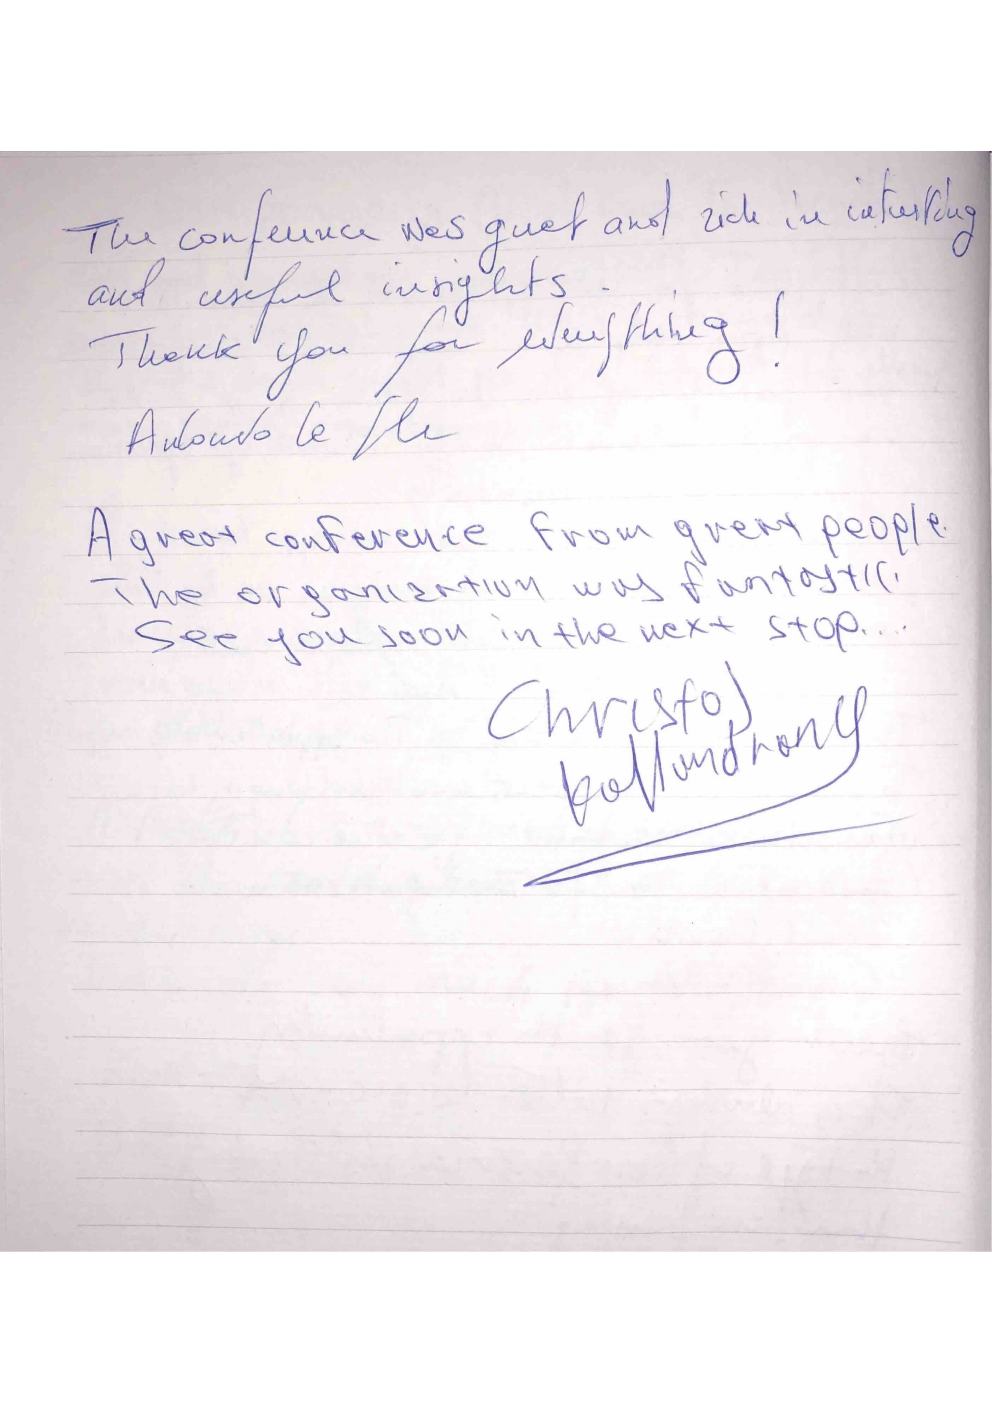 The conference was great and rich in interesting
and useful insights.
Thank you for everything!
A great conference from great people.
The organization was fantastic.
See you soon in the next stop....
Christos